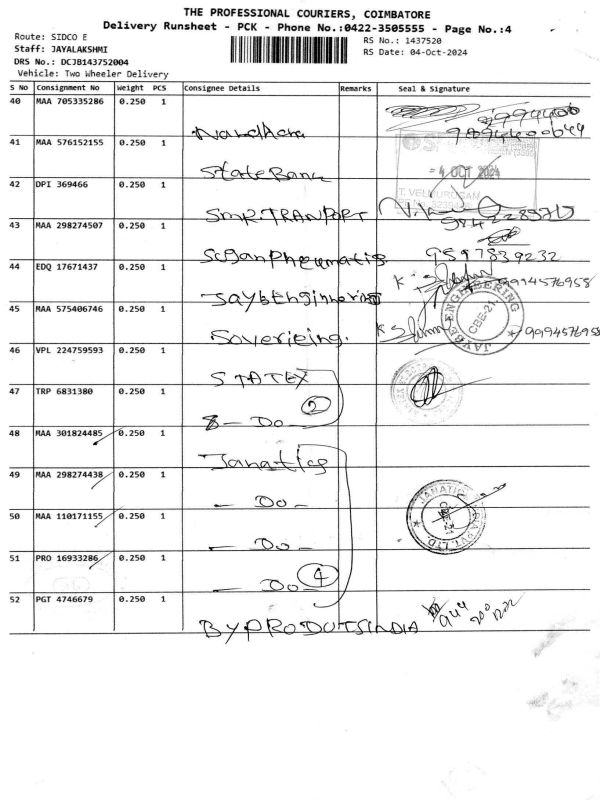 THE PROFESSIONAL COURIERS, COIMBATORE
Delivery Runsheet - PCK - Phone No.:0422-3505555 - Page No.:4
Route: SIDCO E
RS No.: 1437520
Staff: JAYALAKSHMI
RS Date: 04-Oct-2024
DRS No.: DCJB143752004
Vehicle: Two Wheeler Delivery
S No Consignment No Weight PCS Consignee Details Remarks Seal & Signature
40 MAA 705335286 0.250 1
41 MAA 576152155 0.250 1
State Bank
4 OCT 2024
42 DPI 369466 0.250 1
T. VELMURUGAN
SMR.TRANPORT
43 MAA 298274507 0.250 1
Sugan Pheumatics 9597839232
44 EDQ 17671437 0.250 1
9994576958
JAYBE ENGINEERING CBE-21
45 MAA 575406746 0.250 1
9994576958
46 VPL 224759593 0.250 1
STATEX
47 TRP 6831380 0.250 1
- Do - 2
48 MAA 301824485 0.250 1
Janatics
49 MAA 298274438 0.250 1
- Do -
JANATICS INDIA PVT. LTD. CBE-21
50 MAA 110171155 0.250 1
- Do -
51 PRO 16933286 0.250 1
- Do - 4
52 PGT 4746679 0.250 1
BYPRODUTSINDIA